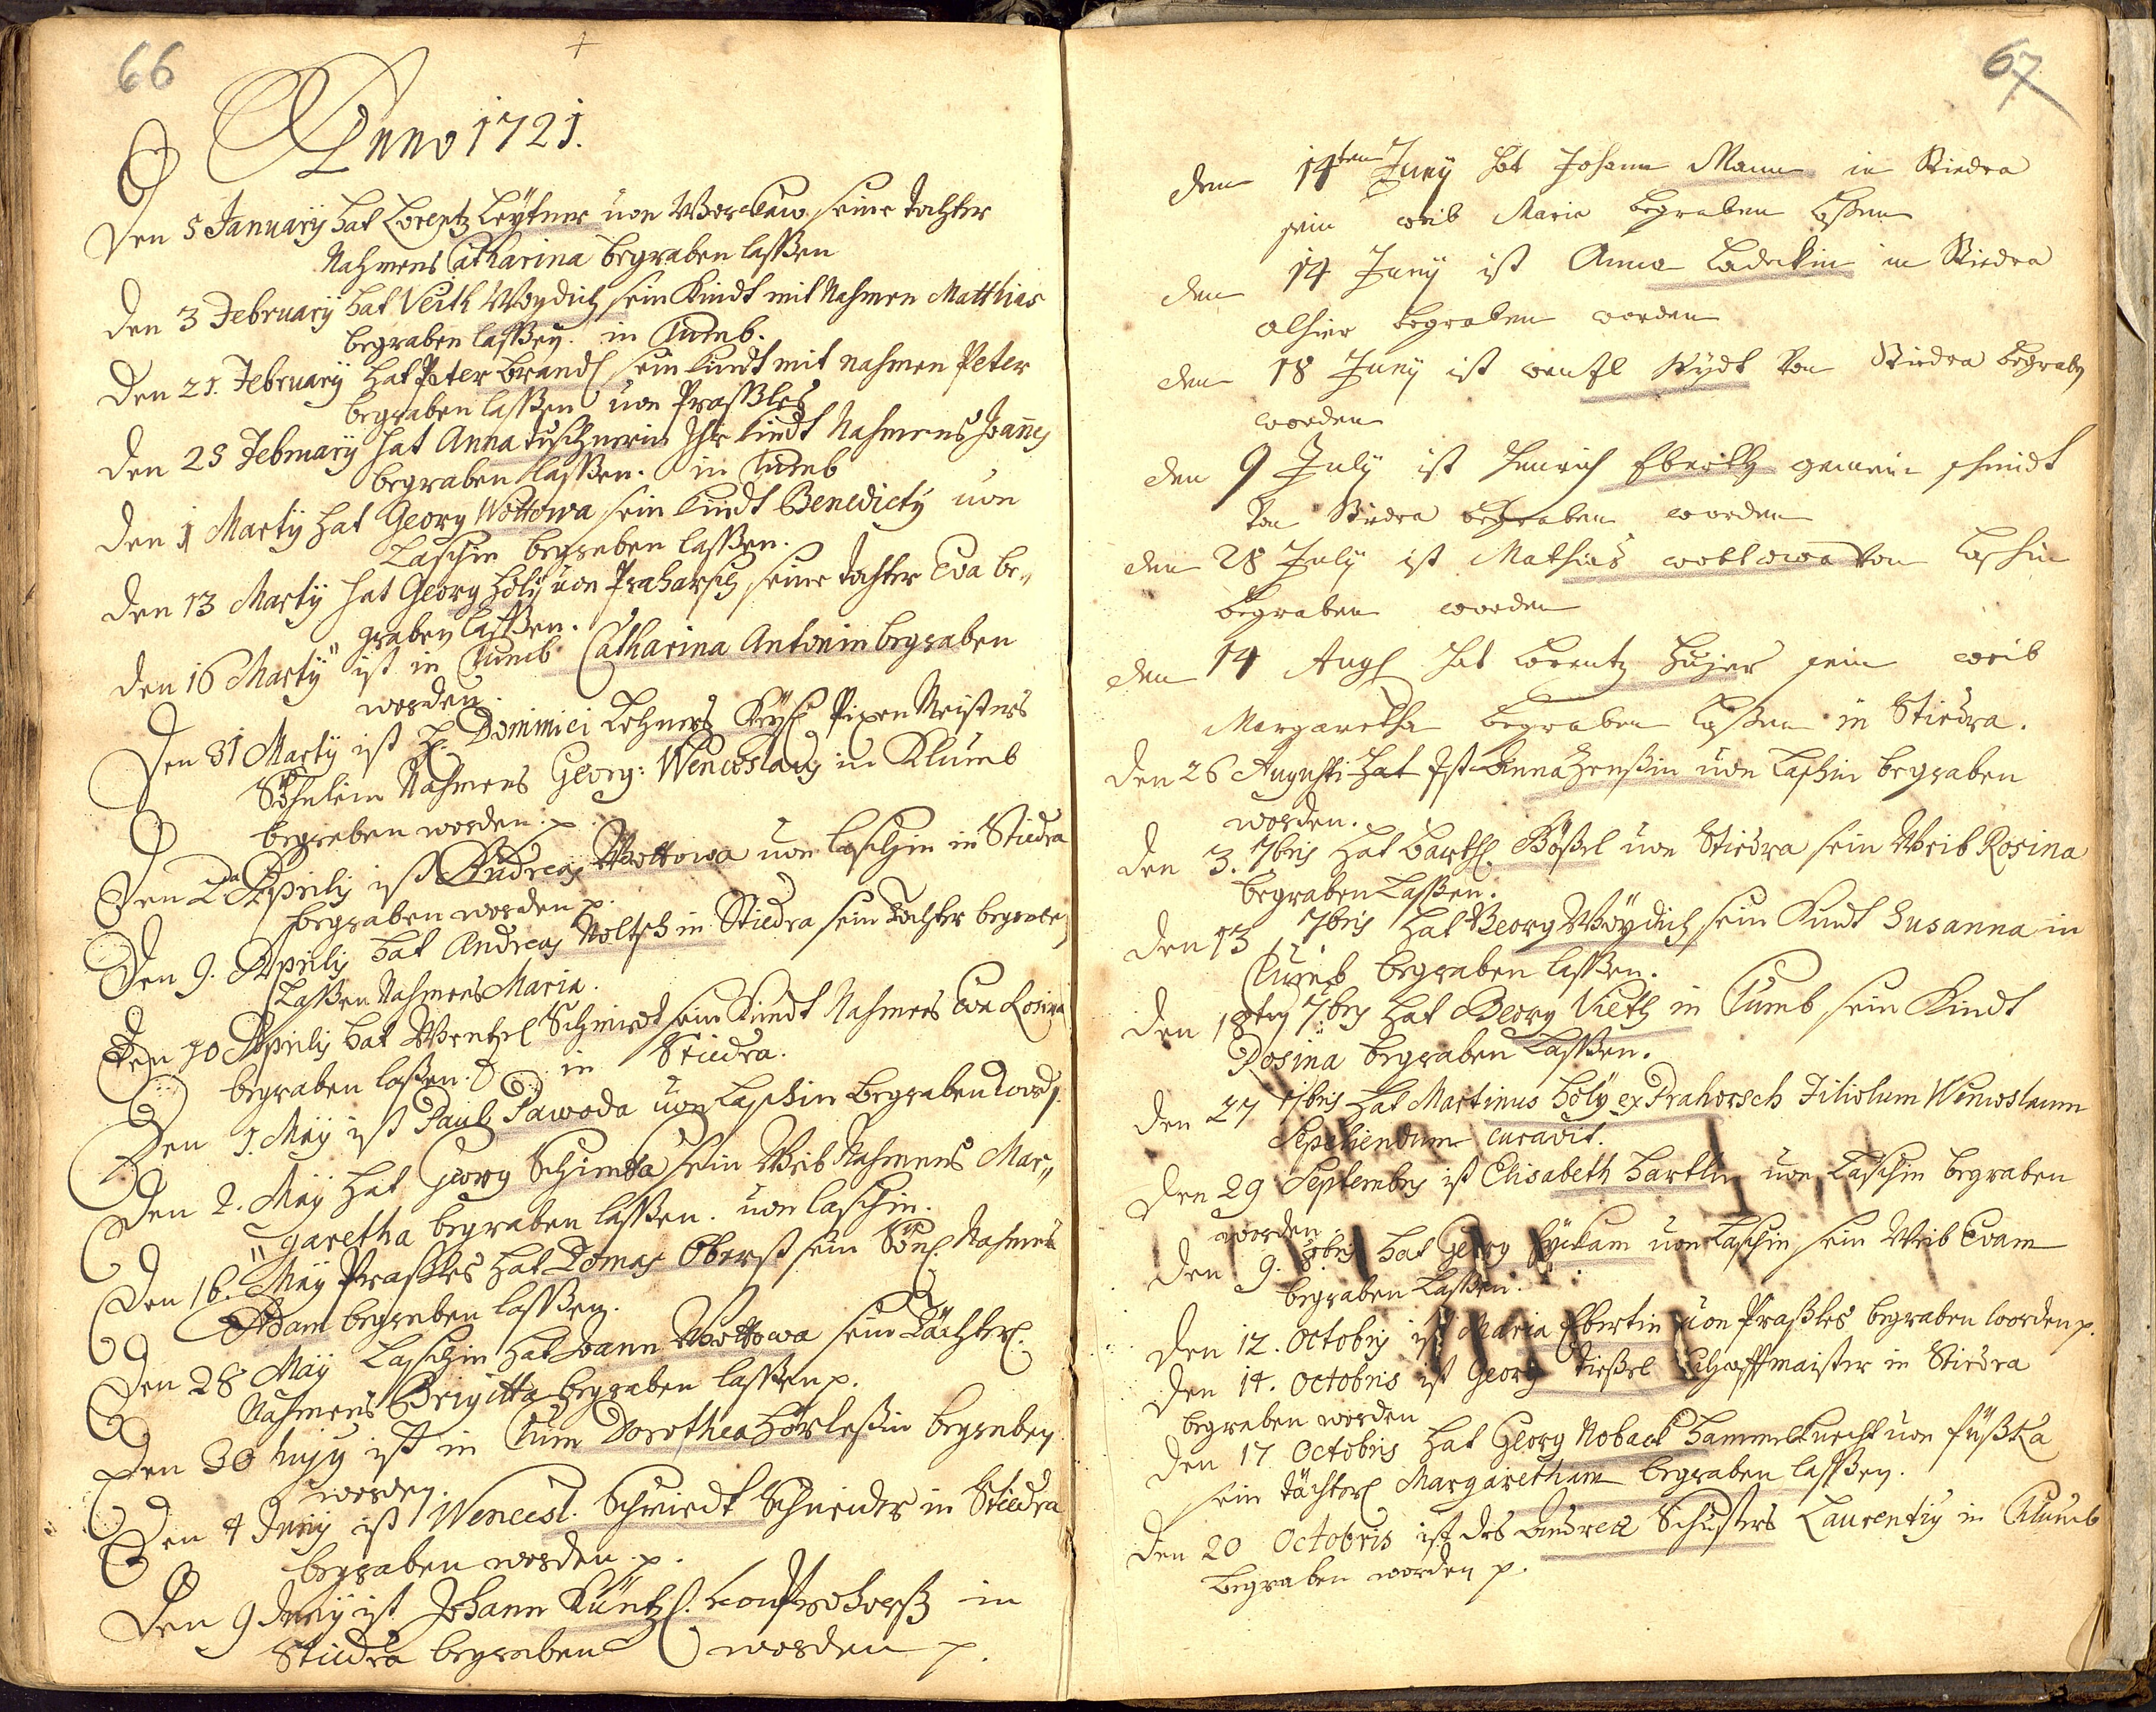 66
Anno 1721.
Den 5 January hat Lorentz Leytner von Worckaw seine Tochter
Nahmens Catharina begraben lassen
Den 3 February hat Veith Woydich sein Kindt mit Nahmen Matthias
begraben lassen. in Cumb.
Den 21. February hat Peter Brandl sein kindt mit nahmen Peter
begraben lassen von Prassles
Den 25 February hat Anna Ihr kindt Nahmens Joannes
begraben lassen. in Cumb
Den 1 Marty hat Georg Wottowa sein kindt Benedicty von
Laschin begraben lassen.
Den 13 Marty hat Georg Holy von Praharsch seine Tochter Eva be„
graben lassen.
Den 16 Marty ist in Cumb Catharina Antonin begraben
worden.
Den 31 Marty ist H. Dominici Lehners Pixen Meisters
Söhnlein Nahmens Georg: Wenceslaus in Klumb
begraben worden. p
Den 2 Aprilis ist Andreas Wottowa von Laschin in Stiedra
begraben worden p.
Den 9. Aprilis hat Andreas Noltsch in Stiedra sein Tochter begraben
Lassen Nahmens Maria.
Den 10 Aprilis hat Wentzel Schmirdt sein Kindt Nahmens Eva Rosina
begraben lassen. in Stiedra.
Den 1. May ist Paul Sawoda von Laschin begraben word.
Den 2. May hat Georg Schimka sein Weib Nahmens Mar„
„garetha begraben lassen. von laschin.
Den 16. May Prassles hat Domas Oberst sein Nahmens
Adam begraben lassen.
Den 28 May Laschin hat Joann Wottowa sein Tächterl.
Nahmens Brigitta begraben lassen p.
Den 30 hujus ist in Cum Dorothea Hörlessin begraben
worden.
Den 4 Juny ist Wencesl. Schmiedt Schneider in Stiedra
begraben worden p.
Den 9 Juny ist Johann Küntzl. von Prohorss in
Stiedra begraben worden p.
67
den 14ten Juny hat Johann Mann in Stiedra
sein weib Maria begraben lassen
den 14 Juny ist Anna Ladekin in Stiedra
alhier begraben worden
den 18 Juny ist wentzl Kydt von Stiedra begraben
worden
den 9 July ist Henrich Ebertts gemein schmidt
von Stiedra begraben worden
den 28 July ist Mathias wottowa von Laschin
begraben worden
den 14 Augs hat Lorentz Hujer sein weib
Margaretha begraben lassen in Stiedra.
Den 26 Augusti hat Ist Anna Henssin von Laschin begraben
worden.
Den 3. 7bris hat Barthl Bössel von Stiedra sein Weib Rosina
begraben Lassen.
Den 13 7bris hat Georg Woydich sein Kindt Susanna in
Cumb begraben lassen.
Den 18ten 7bris hat Georg Vieth in Cumb sein Kindt
Rosina begraben Lassen.
Den 27 7bris hat Martinus Holy ex Prahorsch Filiolum Wenceslaum
Sepeliendum curavit.
Den 29 Septembris ist Elisabeth Bartlin von Laschin begraben
worden.
Den 9. 8bris hat Georg von Laschin sein Weib Evam
begraben Lassen.
Den 12. Octobris ist Maria Ebertin von Prassles begraben worden p.
Den 14. Octobris ist Georg Tiessel Schaffmaister in Stiedra
begraben worden
Den 17 Octobris hat Georg Noback Hammelknecht von
sein Tächterl Margaretham begraben lassen.
Den 20 Octobris ist des Andreæ Schusters Laurentiy in Klumb
begraben worden p.